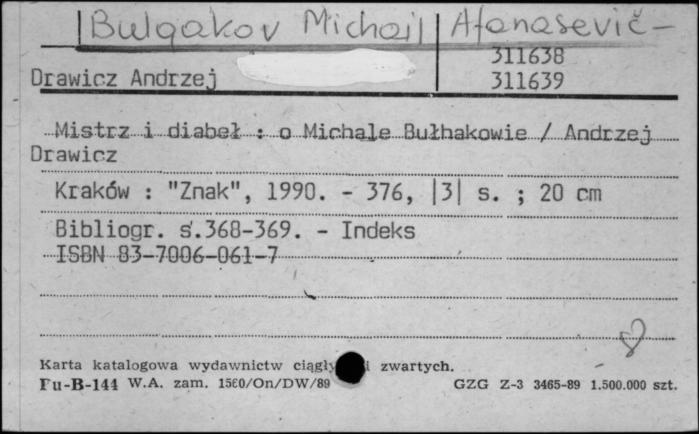 Bulgakov Michail Afanasevič-
311638
Drawicz Andrzej 311639
Mistrz i diabeł : o Michale Bułhakowie / Andrzej
Drawicz
Kraków : "Znak", 1990. - 376, |3| s. ; 20 cm
Bibliogr. s.368-369. - Indeks
ISBN 83-7006-061-7
Karta katalogowa wydawnictw zwartych.
Fu-B-144 W.A. zam. 1560/On/DW/89 GZG Z-3 3465-89 1.500.000 szt.